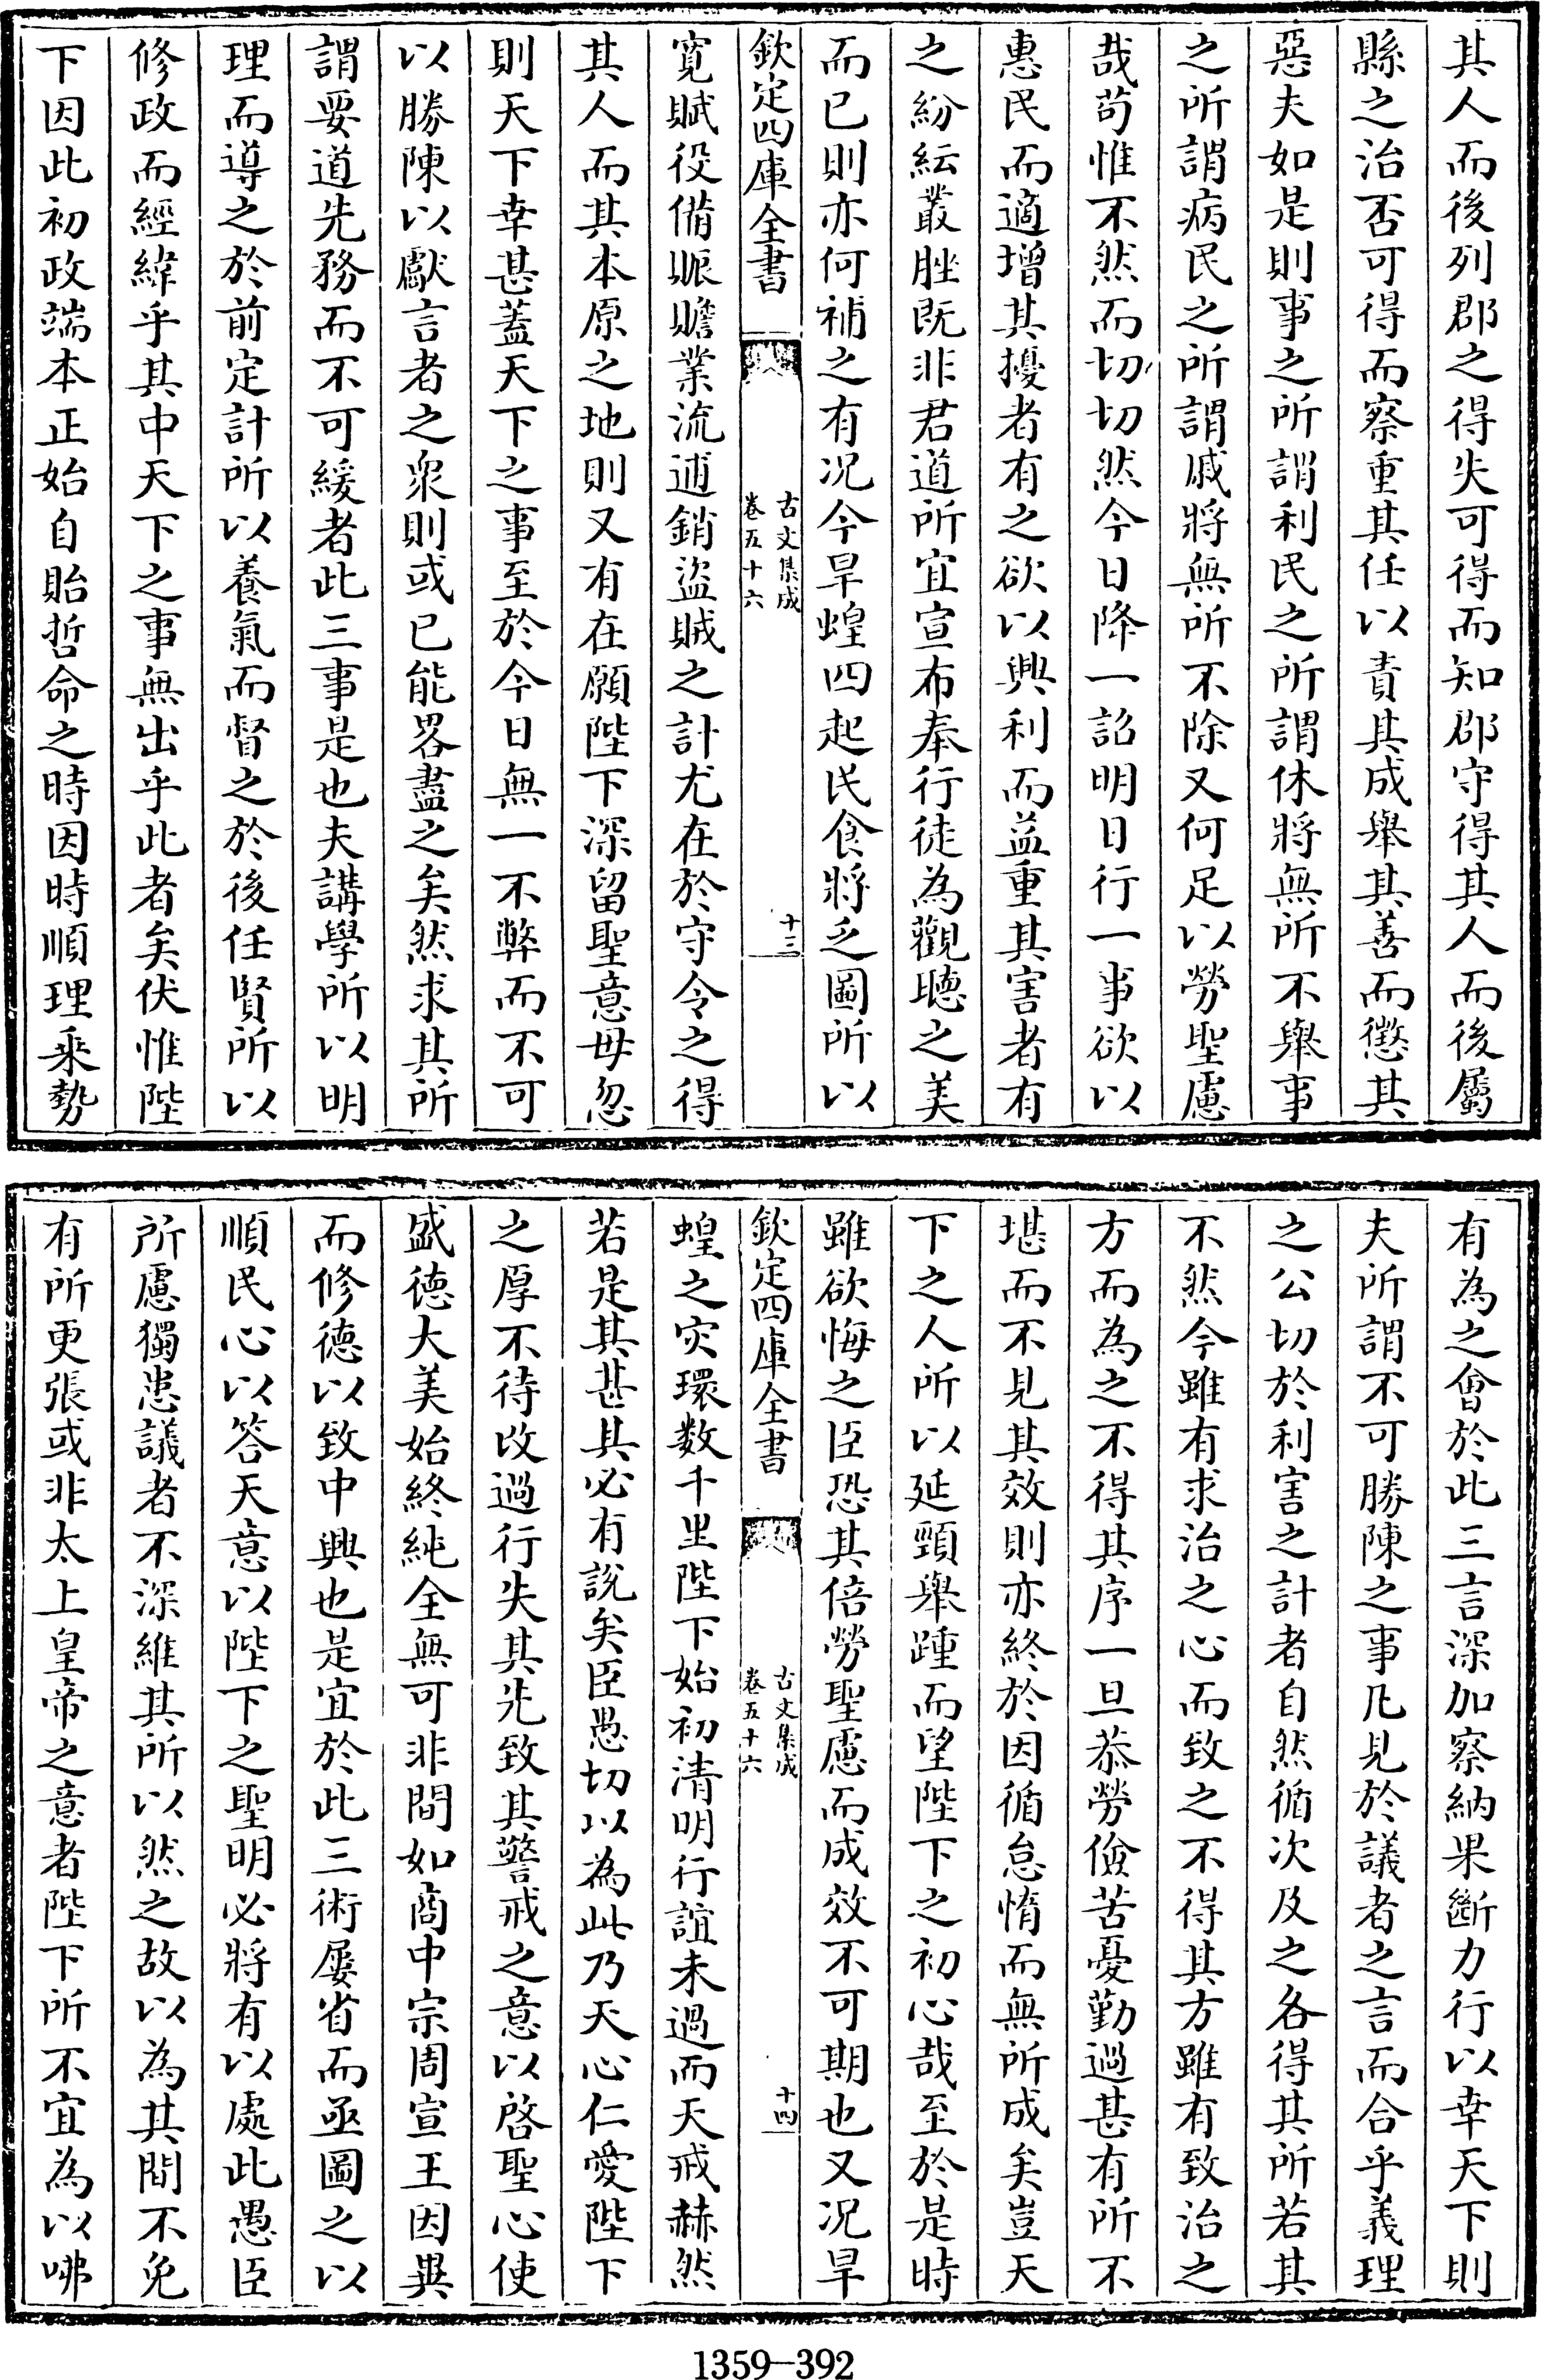 其人而後列郡之得失可得而知郡守得其人而後屬
縣之治否可得而察重其任以責其成舉其善而懲其
惡夫如是則事之所謂利民之所謂休將無所不舉事
之所謂病民之所謂戚將無所不除又何足以勞聖慮
哉苟惟不然而切切然今日降一詔明日行一事欲以
惠民而適增其擾者有之欲以興利而益重其害者有
之紛紜叢脞既非君道所宜宣布奉行徒為觀聽之美
而已則亦何補之有况今旱蝗四起民食將乏圖所以
欽定四庫全書
古文集成
卷五十六
十三
寛賦役備賑贍業流逋銷盜賊之計尤在於守令之得
其人而其本原之地則又有在願陛下深留聖意毋忽
則天下幸甚蓋天下之事至於今日無一不弊而不可
以勝陳以獻言者之衆則或已能畧盡之矣然求其所
謂要道先務而不可緩者此三事是也夫講學所以明
理而導之於前定計所以養氣而督之於後任賢所以
修政而經緯乎其中天下之事無出乎此者矣伏惟陛
下因此初政端本正始自貽哲命之時因時順理乗勢
有為之會於此三言深加察納果斷力行以幸天下則
夫所謂不可勝陳之事凡見於議者之言而合乎義理
之公切於利害之計者自然循次及之各得其所若其
不然今雖有求治之心而致之不得其方雖有致治之
方而為之不得其序一旦恭勞儉苦憂勤過甚有所不
堪而不見其效則亦終於因循怠惰而無所成矣豈天
下之人所以延頸舉踵而望陛下之初心哉至於是時
雖欲悔之臣恐其倍勞聖慮而成效不可期也又况旱
欽定四庫全書
古文集成
卷五十六
十四
蝗之灾環数千里陛下始初清明行誼未過而天戒赫然
若是其甚其必有說矣臣愚切以為此乃天心仁愛陛下
之厚不待改過行失其先致其警戒之意以啓聖心使
盛德大美始終純全無可非間如商中宗周宣王因異
而修德以致中興也是宜於此三術屢省而亟圖之以
順民心以答天意以陛下之聖明必將有以處此愚臣
所慮獨患議者不深維其所以然之故以為其間不免
有所更張或非太上皇帝之意者陛下所不宜為以咈
1359—392